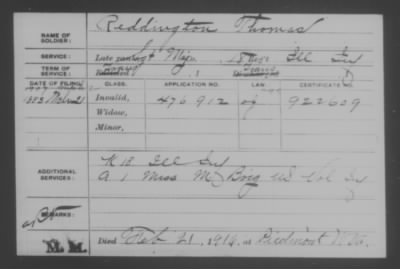 NAME OF SOLDIER: Reddington Thomas
SERVICE: Late rank, Sgt Maj., 15 Reg't Ill Inf
TERM OF SERVICE: Enlisted , 1 Discharged
DATE OF FILING. CLASS. APPLICATION NO. LAW. CERTIFICATE NO.
1883 Mch 21 Invalid, 476912 922609
Widow,
Minor,
ADDITIONAL SERVICES: K 10 Ill Inf
A 1 Miss M. Brig US Vol
REMARKS:
M.M. Died Feb 21, 1914, at Piedmont W.Va.